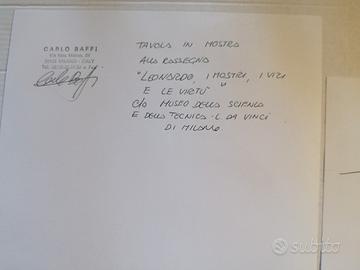 CARLO BAFFI
MILANO - ITALY
Carlo Baffi
TAVOLA IN MOSTRA
ALLA RASSEGNA
"LEONARDO, I MOSTRI, I VIZI
E LE VIRTÙ"
C/O MUSEO DELLA SCIENZA
E DELLA TECNICA - L. DA VINCI
DI MILANO.
subito